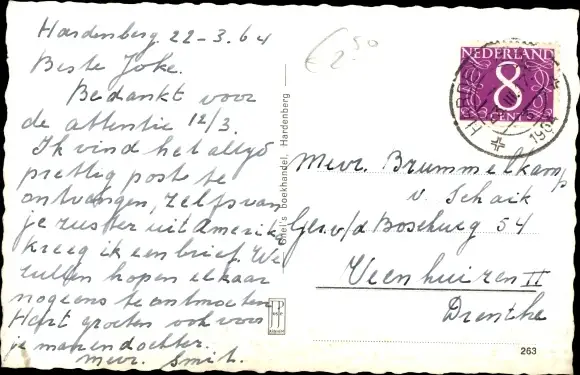 Hardenberg 22-3.64
Beste Joke.
Bedankt voor
de attentie 12/3.
Ik vind het altijd
prettig poste te
ontvangen, zelfs van
je zuster uit Amerika
kreeg ik een brief. We
zullen hopen elkaar
nog eens te ontmoeten
Hart. groeten ook voor
je man en dochter.
mevr. Smit.
€ 2.50
boekhandel, Hardenberg
NEDERLAND
8
CENT
1964
Mevr. Brummelkamp
v. Schaik
Ger. v/d Boschweg 54
Veenhuizen II
Drenthe
263